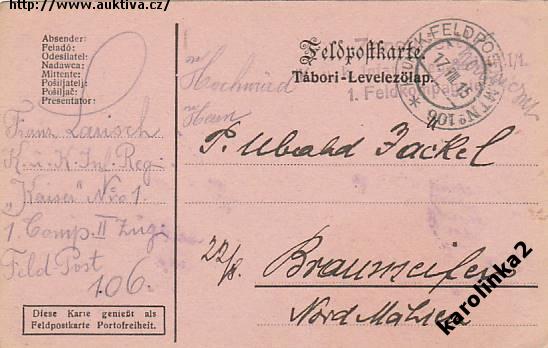 www.auktiva.cz
Absender:
Feladó:
Odesílatel:
Nadawca:
Mittente:
Pošiljatelj:
Pošiljač:
Presentator:
Feldpostkarte.
Tábori-Levelezőlap.
1. Feldkomp
K.U.K. FELDPOSTAMT No 106
17.VIII.15
Hochwürd
Herrn
P. Ubald Jackel
22/8.
Braunseifen
Nord Mähren
Franz Larisch
K. u. K. Inf. Reg.
„Kaiser" Nro 1
1. Comp. II Zug
Feld Post
106.
Diese Karte genießt als
Feldpostkarte Portofreiheit.
karolinka2